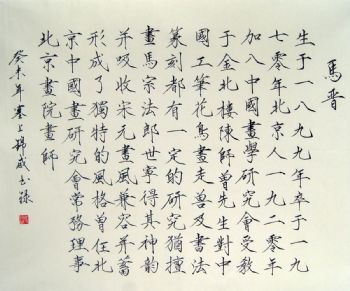 馬晋
生于一八九九年卒于一九
七零年北京人一九二零年
加八中國畫學研究會受教
于金北樓陳師曾先生對中
國工筆花鳥畫走獸及書法
篆刻都有一定的研究猶擅
畫馬宗法郎世寧得其神韵
并吸收宋元畫風兼容并蓄
形成了獨特的風格曾任北
京中國畫研究會常務理事
北京畫院畫師
癸未年寒上錦成書錄